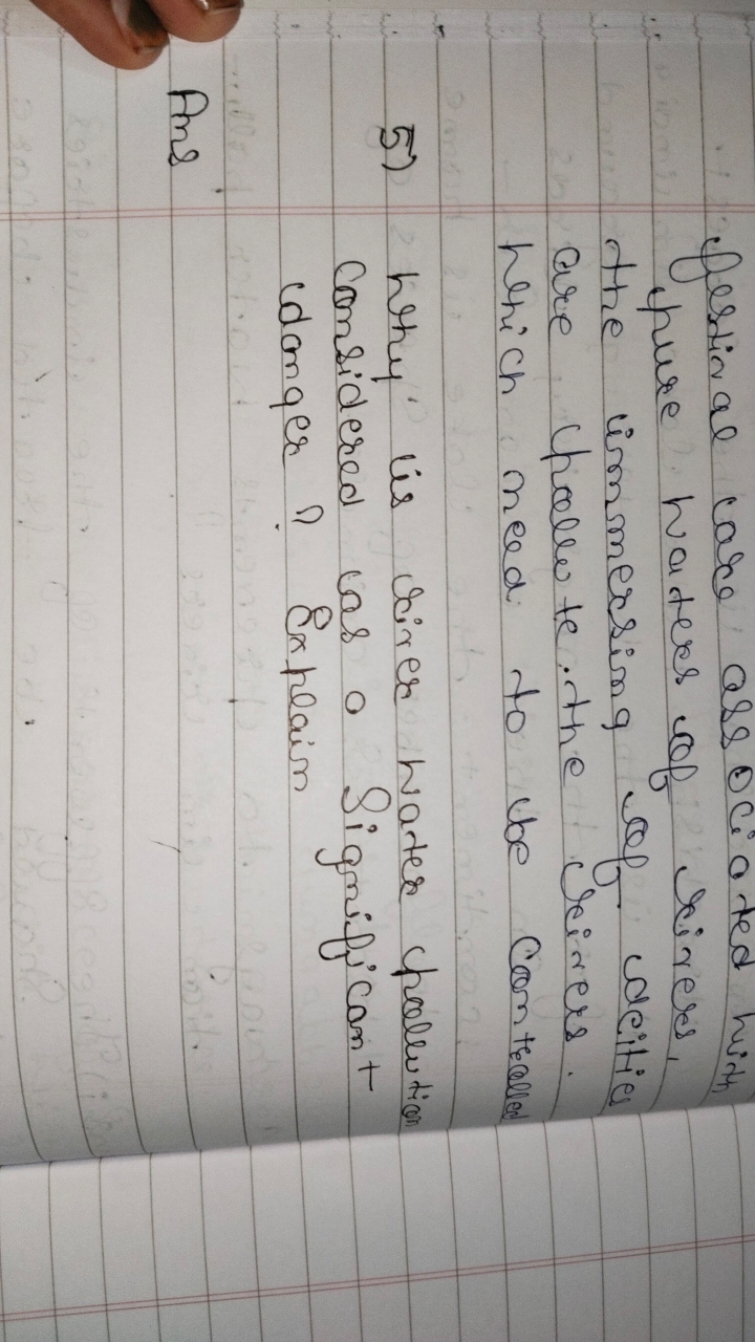 festival are associated with
pure waters of rivers,
the immersing of deities
are pollute the rivers.
which need to be controlled
5) Why is river water pollution
considered as a significant
danger? Explain
Ans